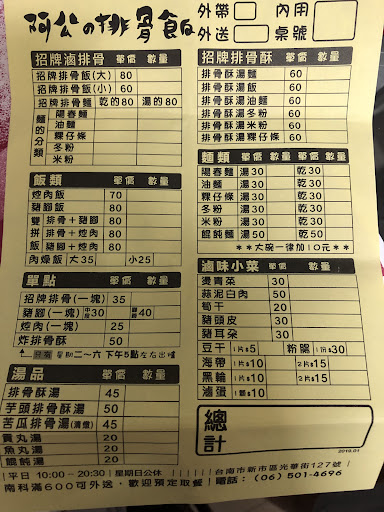 阿公の排骨飯
外帶 內用
外送 桌號
招牌滷排骨 單價 數量
招牌排骨飯(大) 80
招牌排骨飯(小) 60
招牌排骨麵 乾的80 湯的80
麵的分類
陽春麵
油麵
粿仔條
冬粉
米粉
飯類 單價 數量
焢肉飯 70
豬腳飯 80
雙拼飯
排骨+豬腳
排骨+焢肉
豬腳+焢肉
80
肉燥飯 大35 小25
單點 單價 數量
招牌排骨(一塊) 35
豬腳(一塊) 30 40
焢肉(一塊) 25
炸排骨酥 50
星期二～六 下午5點左右出爐
湯品 單價 數量
排骨酥湯 45
芋頭排骨酥湯 50
苦瓜排骨湯(清燉) 45
貢丸湯 20
魚丸湯 20
餛飩湯 20
招牌排骨酥 單價 數量
排骨酥湯麵 60
排骨酥湯飯 60
排骨酥湯油麵 60
排骨酥湯冬粉 60
排骨酥湯米粉 60
排骨酥湯粿仔條 60
麵類 單價 數量 單價 數量
陽春麵 湯30 乾30
油麵 湯30 乾30
粿仔條 湯30 乾30
冬粉 湯30 乾30
米粉 湯30 乾30
餛飩麵 湯50 乾50
**大碗一律加10元**
滷味小菜 單價 數量
燙青菜 30
蒜泥白肉 50
筍干 30
豬頭皮 30
豬耳朵 30
豆干 1片$5 粉腸 1份$30
海帶 1片$10 2片$15
黑輪 1片$10 2片$15
滷蛋 1顆$10
總計
2016.04
平日 10:00-20:30|星期日公休 台南市新市區光華街127號
南科滿600可外送，歡迎預定取餐|電話：(06)501-4696